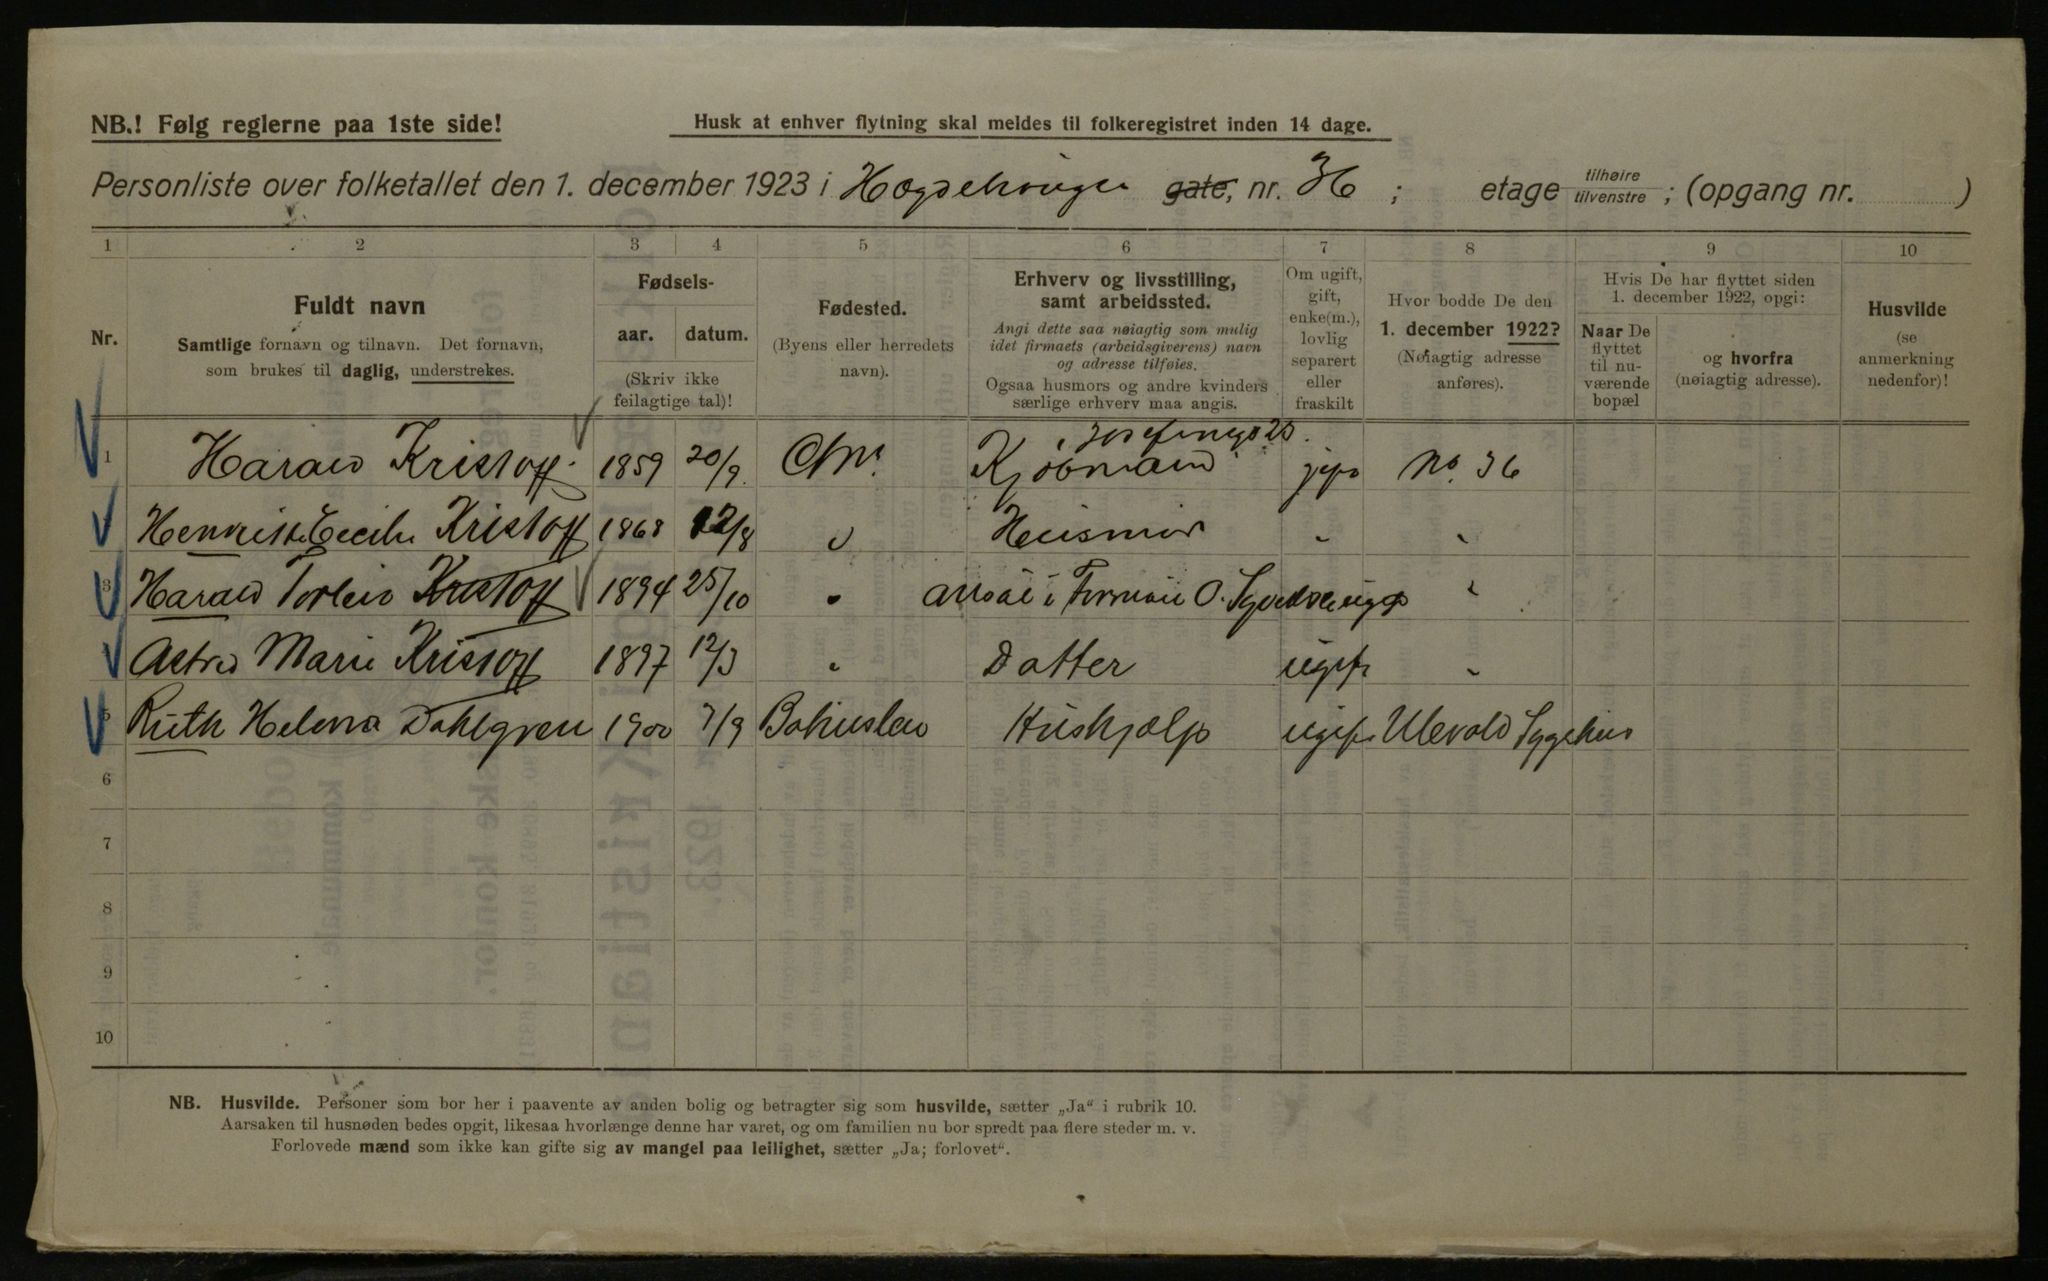 NB.! Følg reglerne paa 1ste side!
Husk at enhver flytning skal meldes til folkeregistret inden 14 dage.
Personliste over folketallet den 1. december 1923 i Hægdehaugen gate, nr. 36 ; etage tilhøire tilvenstre ; (opgang nr. )
1 2 3 4 5 6 7 8 9 10
Nr.
Fuldt navn
Samtlige fornavn og tilnavn. Det fornavn,
som brukes til daglig, understrekes.
Fødsels-
aar. datum.
(Skriv ikke
feilagtige tal)!
Fødested.
(Byens eller herredets
navn).
Erhverv og livsstilling,
samt arbeidssted.
Angi dette saa nøiagtig som mulig
idet firmaets (arbeidsgiverens) navn
og adresse tilføies.
Ogsaa husmors og andre kvinders
særlige erhverv maa angis.
Om ugift,
gift,
enke(m.),
lovlig
separert
eller
fraskilt
Hvor bodde De den
1. december 1922?
(Nøiagtig adresse
anføres).
Hvis De har flyttet siden
1. december 1922, opgi:
Naar De
flyttet
til nu-
værende
bopæl
og hvorfra
(nøiagtig adresse).
Husvilde
(se
anmerkning
nedenfor)!
1 Harald Kristoff 1859 20/9. Chra Kjøbmand i Josefinegs 25. gift No. 36
Henriette Cecilie Kristoff 1868 12/8 " Husmor " "
3 Harald Torleiv Kristoff 1894 25/10 " ansat i Firmaet O. ugift "
Astrid Marie Kristoff 1897 12/3 " Datter ugift "
5 Ruth Helena Dahlgren 1900 7/9 Bohuslen Hushjælp ugift Ulevold Sygehus
6
7
8
9
10
NB. Husvilde. Personer som bor her i paavente av anden bolig og betragter sig som husvilde, sætter „Ja“ i rubrik 10.
Aarsaken til husnøden bedes opgit, likesaa hvorlænge denne har varet, og om familien nu bor spredt paa flere steder m. v.
Forlovede mænd som ikke kan gifte sig av mangel paa leilighet, sætter „Ja; forlovet“.